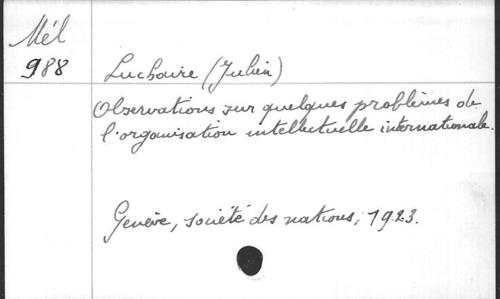 Mél
988
Luchaire (Julien)
Observations sur quelques problèmes de
l'organisation intellectuelle internationale.
Genève, société des nations, 1923.